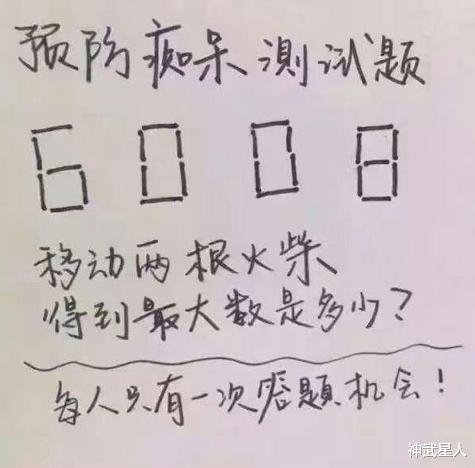 预防痴呆测试题
6008
移动两根火柴
得到最大数是多少？
每人只有一次答题机会！
神武星人